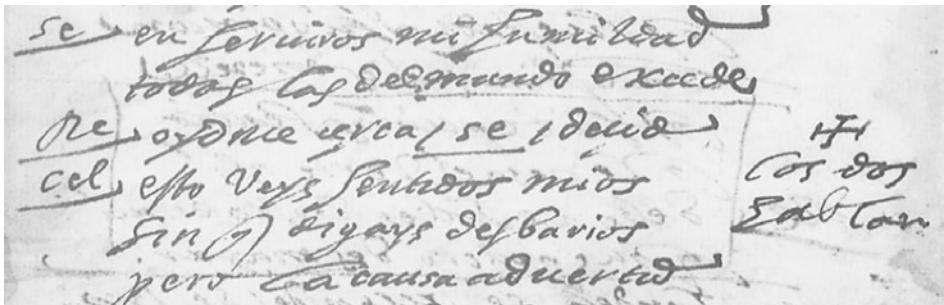 se en seruiros mi humildad
todos las del mundo excede
Re oydme cerca / se / decid
cel esto veys sentidos mios
sin q digays desbarios
pero la causa aduertid
los dos
hablan